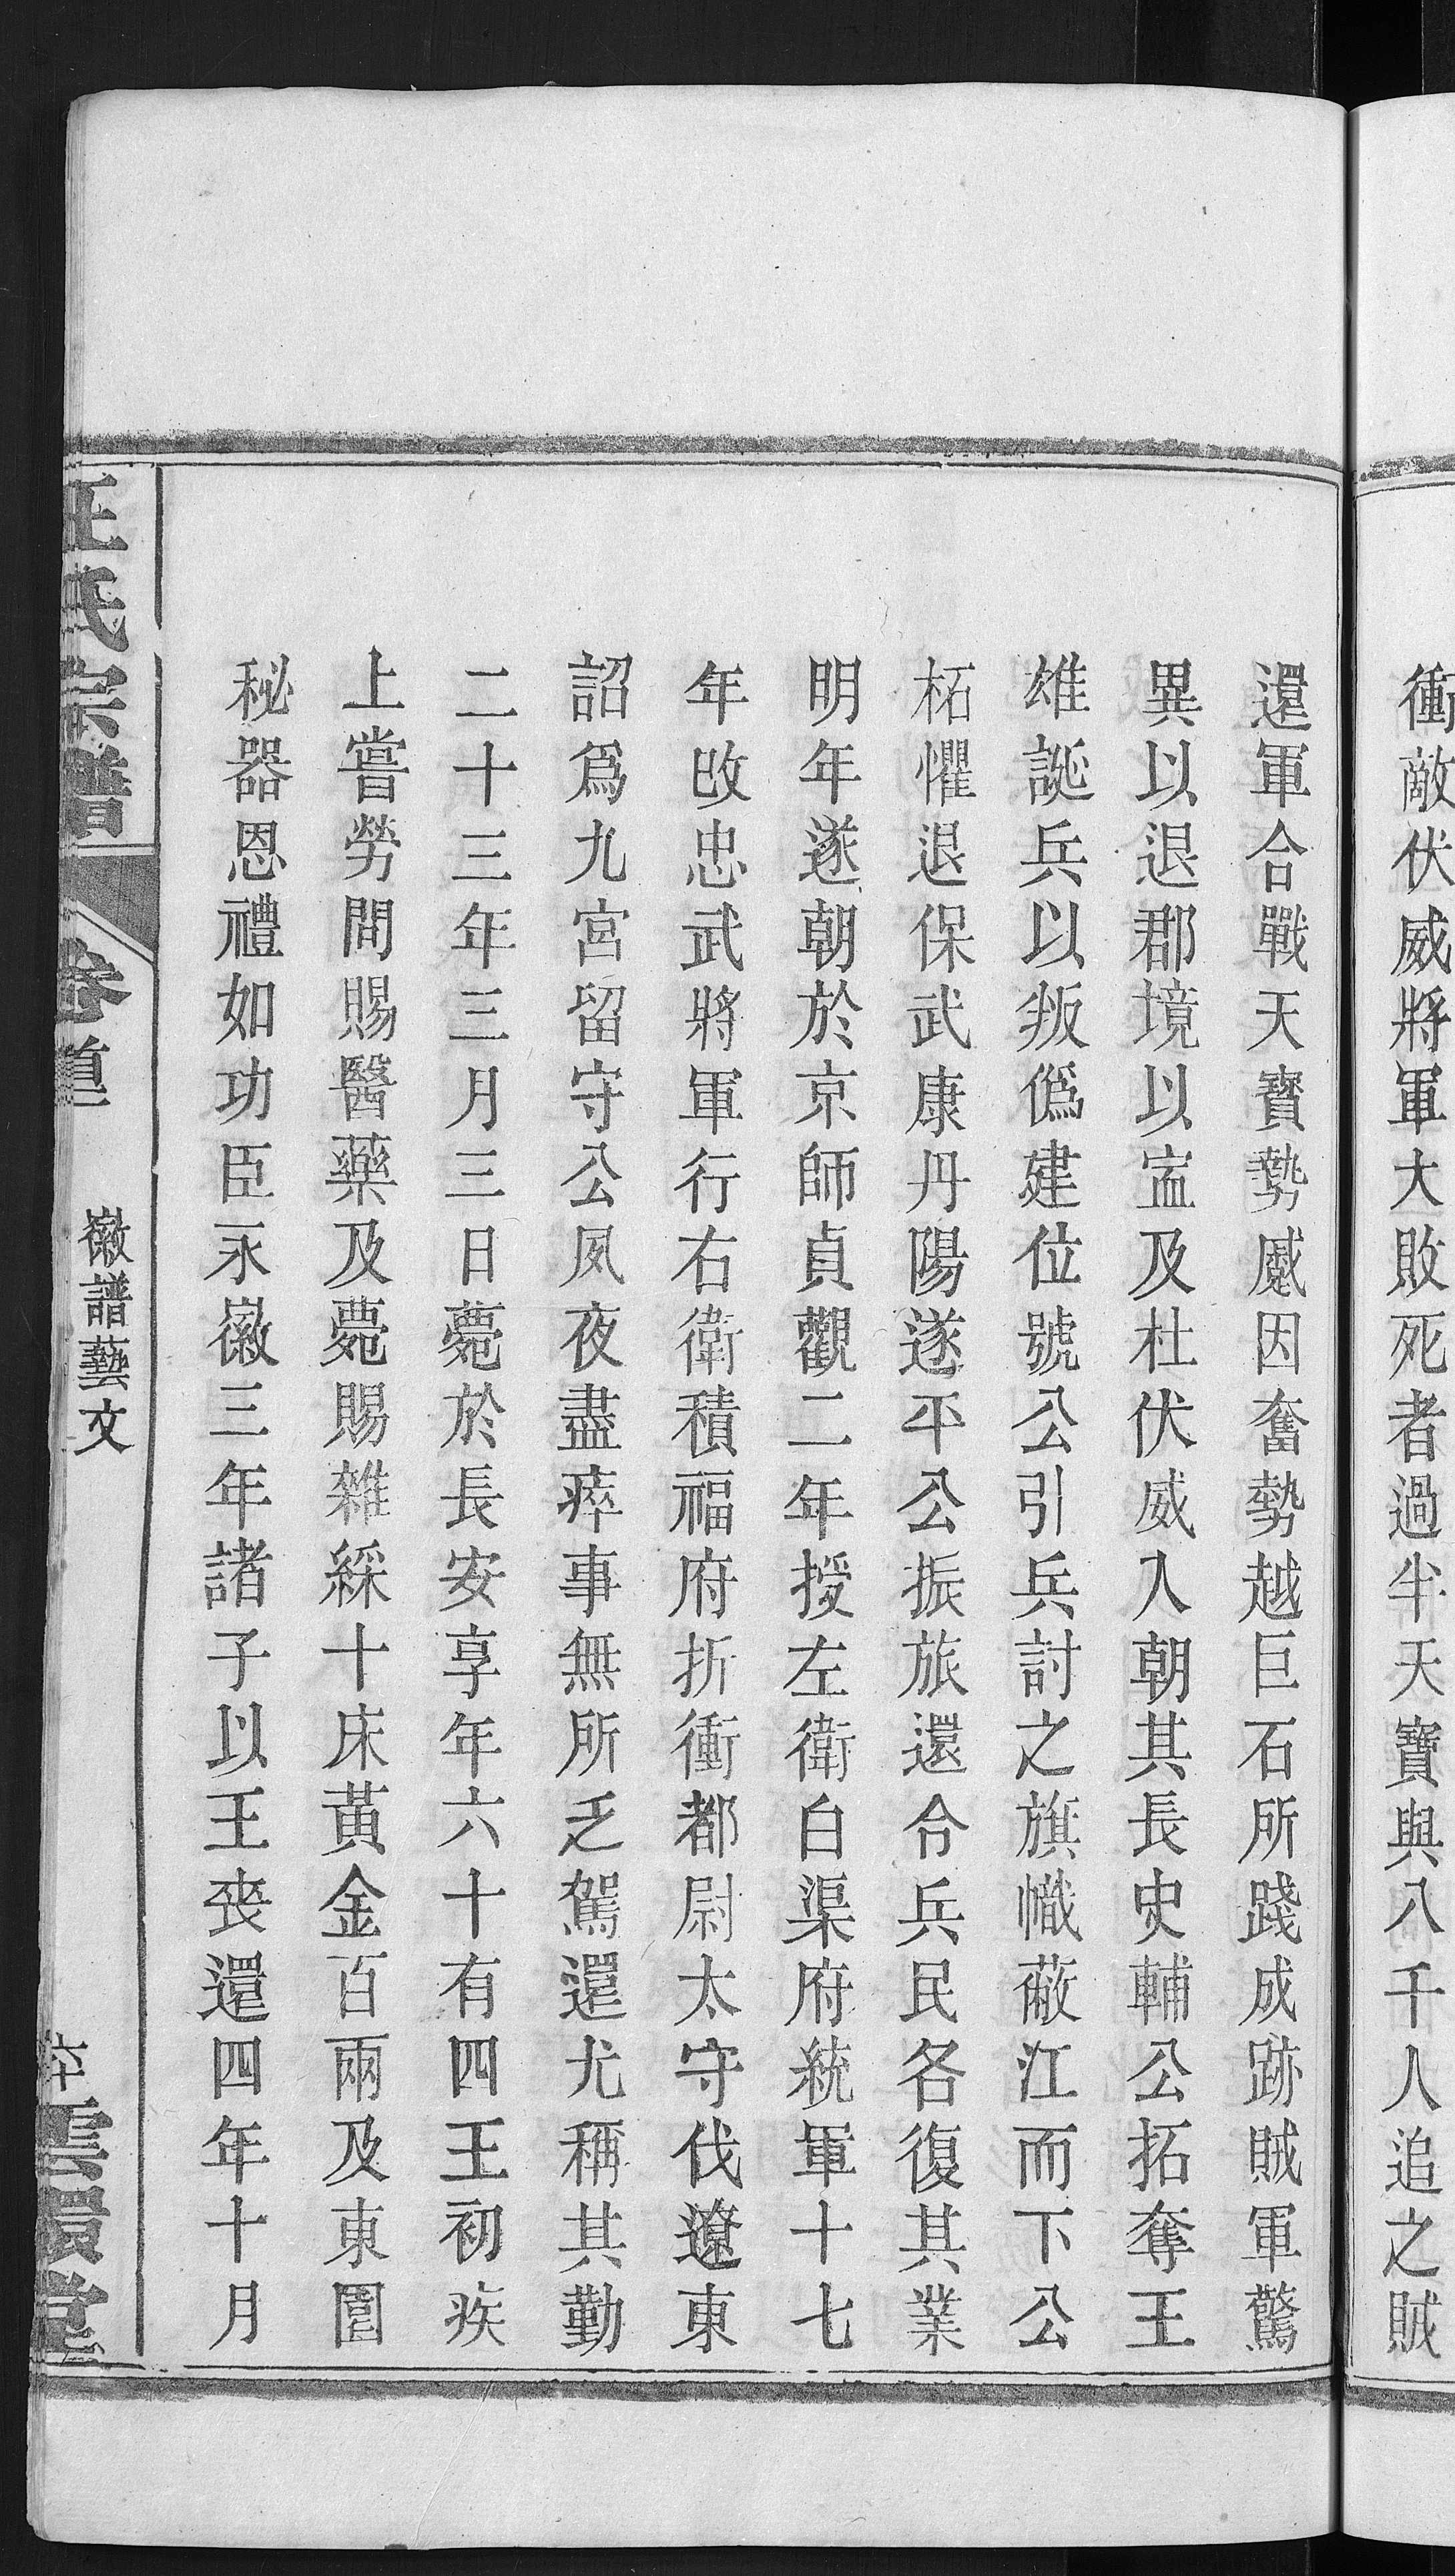 衝敵伏威將軍大敗死者過半天寶與八千人追之賊
還軍合戰天寶勢蹙因奮勢越巨石所踐成跡賊軍驚
異以退郡境以寍及杜伏威入朝其長史輔公拓奪王
雄誕兵以叛僞建位號公引兵討之旗幟蔽江而下公
柘懼退保武康丹陽遂平公振旅還令兵民各復其業
明年遂朝於京師貞觀二年授左衛白渠府統軍十七
年改忠武將軍行右衛積福府折衝都尉太守伐遼東
詔爲九宮留守公夙夜盡瘁事無所乏駕還尤稱其勤
二十三年三月三日薨於長安享年六十有四王初疾
上嘗勞問賜醫藥及薨賜雜綵十床黃金百兩及東園
秘器恩禮如功臣永徽三年諸子以王喪還四年十月
汪氏宗譜
卷首
徽譜藝文
六十
雲環堂